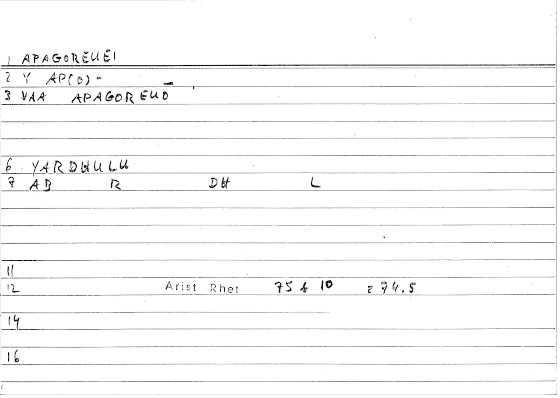 1 APAGOREUEI
2 Y AP(O)-
3 VAA APAGOREUO
6 YARDHULU
7 AB R DH L
11
12 Arist Rhet 75 b 10 = 74.5
14
16